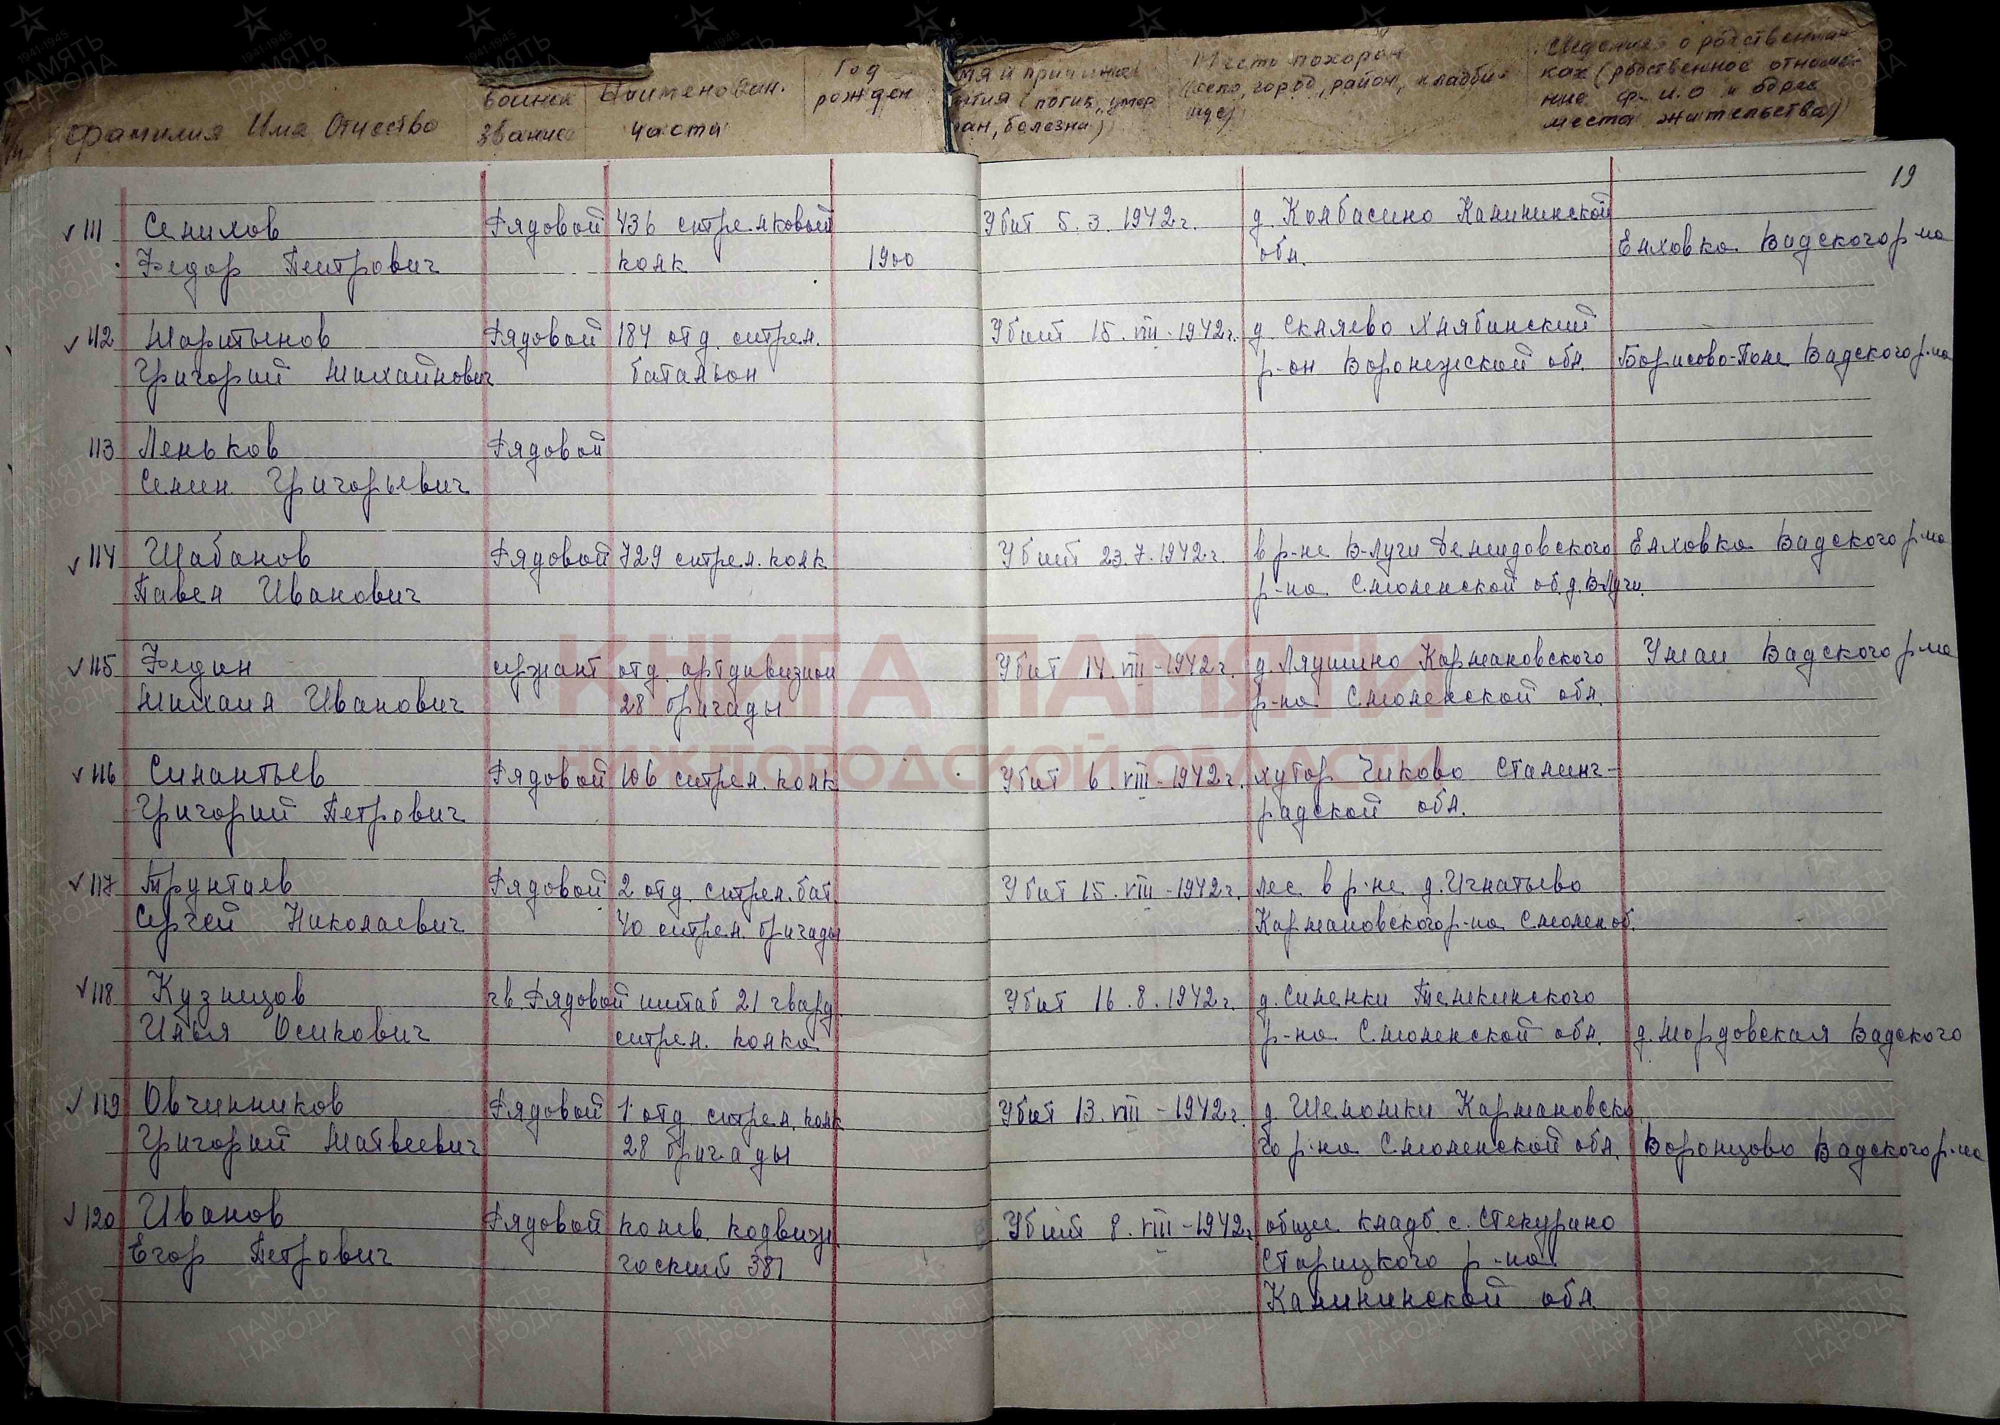 фамилия Имя Отчество
воинск звание
Наименован. части
Год рожден
(погиб, умер
ран, болезни)
Место похорон
(село, город, район, кладби-
ще)
Сведения о родственни-
ках (родственное отноше-
ние ф.и.о и адрес
места жительства)
19
111 Сенихов Рядовой 436 стрелковый Убит 5.3.1942г. д. Колбасино Калининской
Федор Петрович полк 1900 обл. Елховка Вадского р-на
112 Мартынов Рядовой 184 отд. стрел. Убит 15.VIII-1942г. д. Скляево Хлябинский
Григорий Михайлович батальон р-он Воронежской обл. Борисово-Поле Вадского р-на
113 Леньков Рядовой
Семен Григорьевич
114 Шабанов Рядовой 729 стрел. полк Убит 23.7.1942г. в р-не В-Луги Демидовского Елховка Вадского р-на
Павел Иванович р-на Смоленской об. д. В-Луги
115 Федин сержант отд. артдивизион Убит 14.VIII-1942г. д. Лядшино Кармановского Умай Вадского р-на
Михаил Иванович 28 бригады р-на Смоленской обл.
116 Силантьев Рядовой 106 стрел. полк Убит 6.VIII-1942г. хутор Чиково Сталинг-
Григорий Петрович радской обл.
117 Трунтаев Рядовой 2 отд. стрел. бат. Убит 15.VIII-1942г. лес в р-не д. Игнатьево
Сергей Николаевич 40 стрел. бригады Кармановского р-на Смолен об.
118 Кузнецов гв. Рядовой штаб 21 гвард. Убит 16.8.1942г. д. Синенки Темкинского
Илья Осипович стрел. полка р-на Смоленской обл. д. Мордовская Вадского
119 Овчинников Рядовой 1 отд. стрел. полк Убит 13.VIII-1942г. д. Шеломки Кармановско
Григорий Матвеевич 28 бригады го р-на Смоленской обл. Воронцово Вадского р-на
120 Иванов Рядовой полев. подвижн. Убит 8.VIII-1942г. общее кладб с. Стекурино
Егор Петрович госпит 387 Старицкого р-на
Калининской обл.
КНИГА ПАМЯТИ
НИЖЕГОРОДСКОЙ ОБЛАСТИ
1941-1945
ПАМЯТЬ
НАРОДА